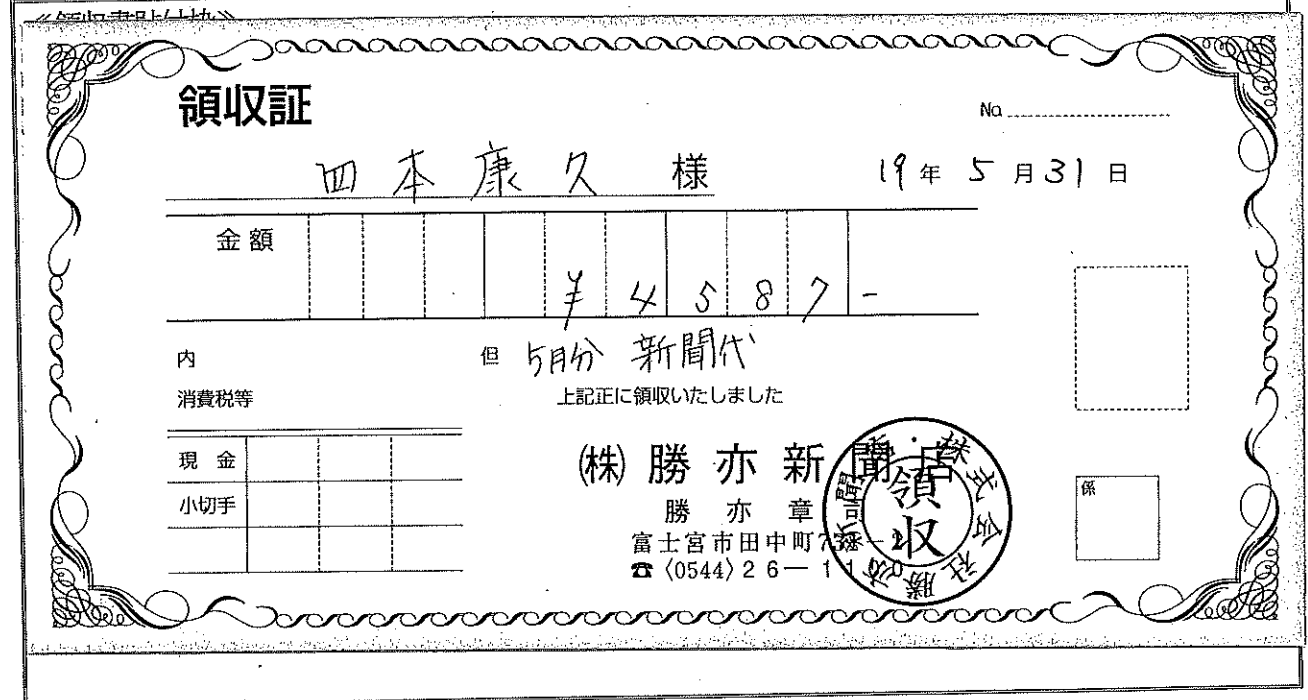 《領収書貼付枠》
領収証
No
四本康久 様 19年5月31日
金額 ¥4587-
内 但 5月分 新聞代
消費税等 上記正に領収いたしました
現金
小切手
㈱勝亦新聞店
勝亦章
富士宮市田中町
☎(0544)26-11
株式会社勝亦新聞店
領収
係